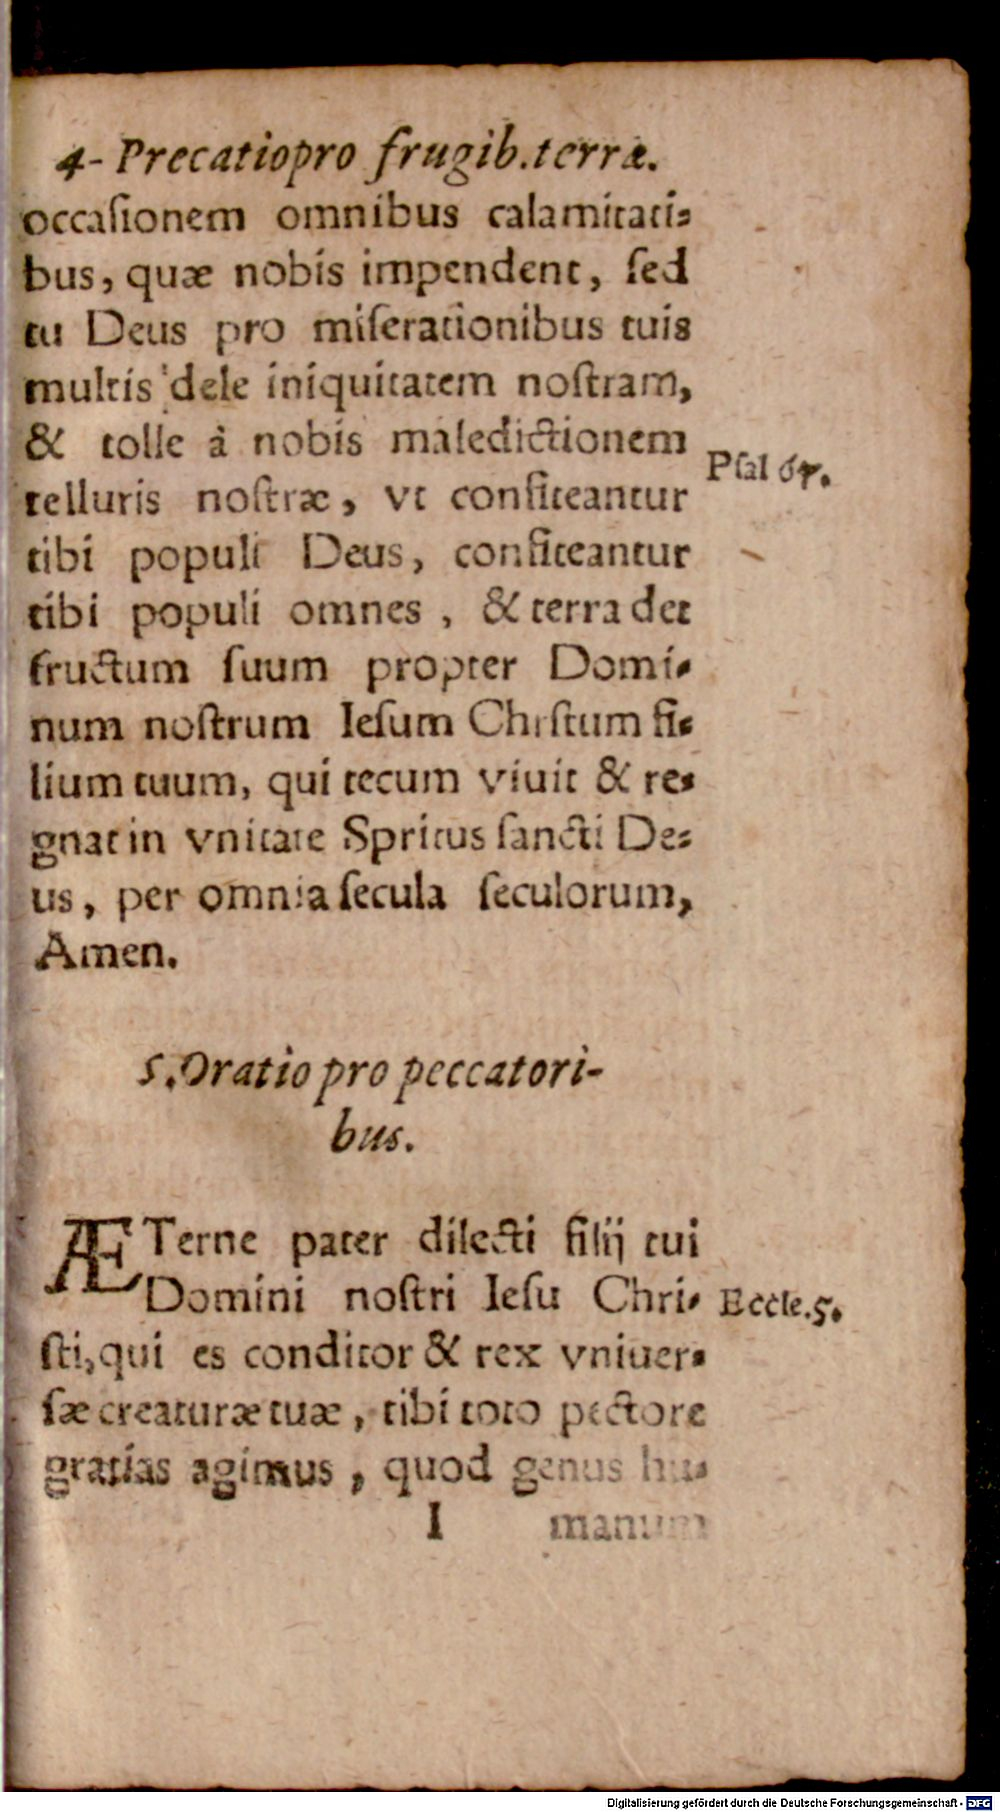 4- Precatio pro frugib. terræ.
occaſionem omnibus calamitati⸗
bus, quæ nobis impendent, ſed
tu Deus pro miſerationibus tuis
multis dele iniquitatem noſtram,
& tolle à nobis maledictionem
Pſal 67.
telluris noſtræ, vt confiteantur
tibi populi Deus, confiteantur
tibi populi omnes, & terra det
fructum ſuum propter Domi⸗
num noſtrum Ieſum Chriſtum fi⸗
lium tuum, qui tecum viuit & re⸗
gnat in vnitate Spritus ſancti De⸗
us, per omnia ſecula ſeculorum,
Amen.
5. Oratio pro peccatori-
bus.
ÆTerne pater dilecti filij tui
Domini noſtri Ieſu Chri⸗
Eccle. 5.
ſti, qui es conditor & rex vniuer⸗
ſæ creaturæ tuæ, tibi toto pectore
gratias agimus, quod genus hu⸗
I manum
Digitalisierung gefördert durch die Deutsche Forschungsgemeinschaft - DFG